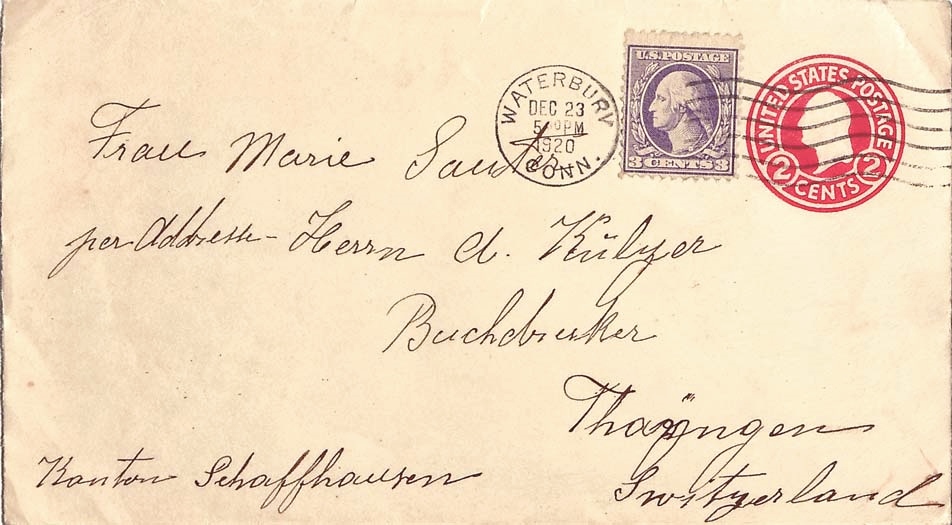 WATERBURY
DEC 23
5 PM
1920
CONN.
U.S. POSTAGE
3 CENTS 3
UNITED STATES POSTAGE
2 CENTS 2
Frau Marie
per Addresse - Herrn A.
Buchdrucker
Thayngen
Kanton Schaffhausen
Switzerland